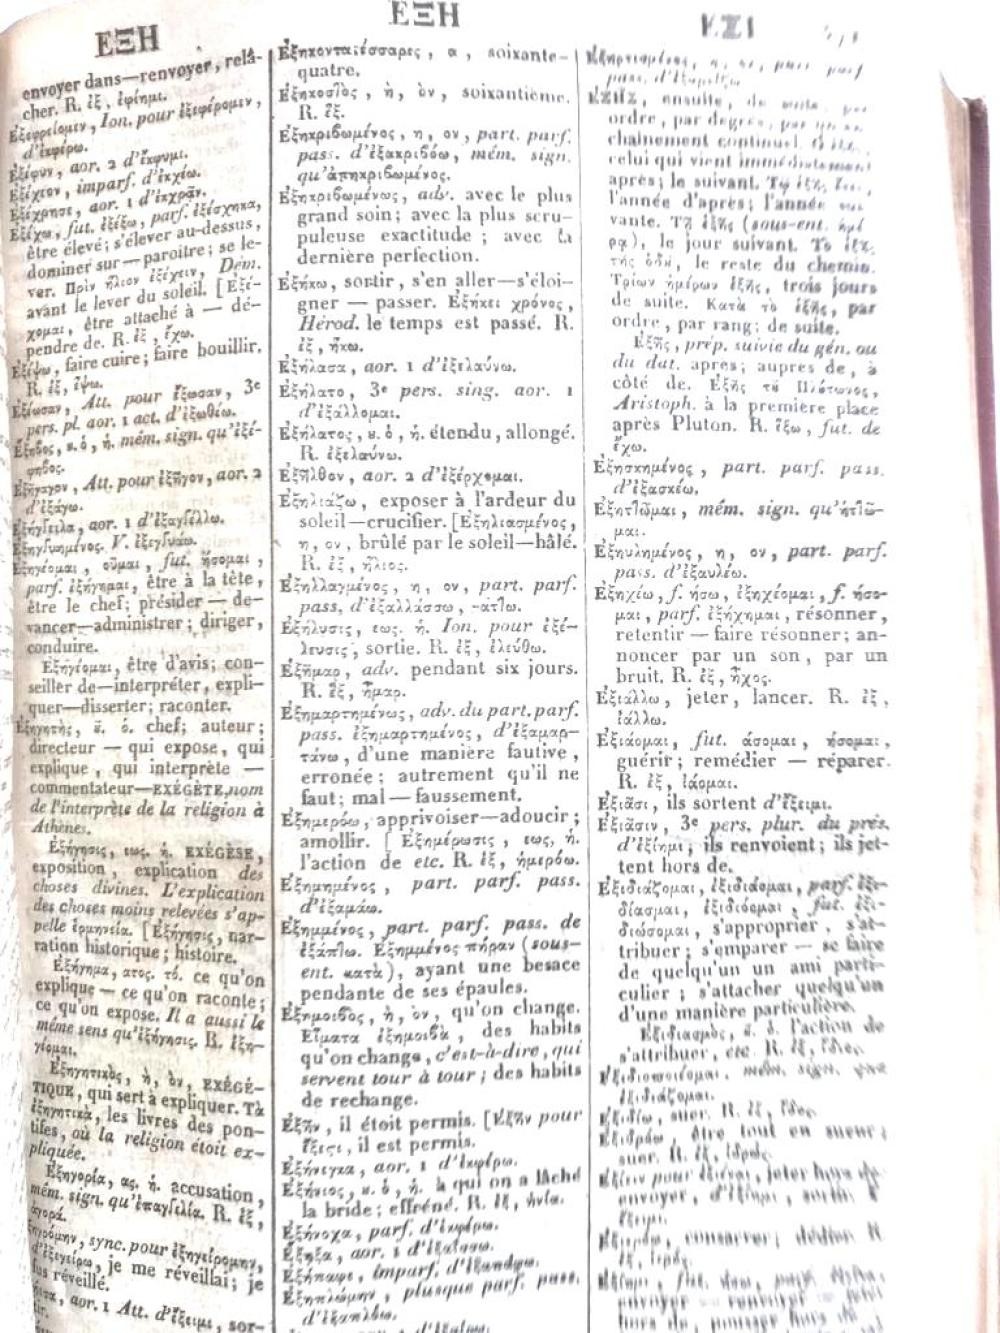 ΕΞΗ
envoyer dans—renvoyer, relâ-
cher. R. ἐξ, ἐφίημι.
Ἐξεφρείομεν, Ion. pour ἐξεφέρομεν,
d'ἐκφέρω.
Ἐξέφυν, aor. 2 d'ἔκφυμι.
Ἐξέχεον, imparf. d'ἐκχέω.
Ἐξέχρησε, aor. 1 d'ἐκχρᾶν.
Ἐξέχω, fut. ἐξέξω, parf. ἐξέσχηκα,
être élevé; s'élever au-dessus,
dominer sur—paroître; se le-
ver. Πρὶν ἥλιον ἐξέχειν, Dém.
avant le lever du soleil. [Ἐξέ-
χομαι, être attaché à — dé-
pendre de. R. ἐξ, ἔχω.
Ἐξέψω, faire cuire; faire bouillir.
R. ἐξ, ἕψω.
Ἐξέωσαν, Att. pour ἔξωσαν, 3e
pers. pl. aor. 1 act. d'ἐξωθέω.
Ἔξηβος, ου. ὁ, ἡ. mém. sign. qu'ἐξέ-
φηβος.
Ἐξήγαγον, Att. pour ἐξῆγον, aor. 2
d'ἐξάγω.
Ἐξήγγειλα, aor. 1 d'ἐξαγγέλλω.
Ἐξηγγυημένος. V. ἐξεγγυάω.
Ἐξηγέομαι, οῦμαι, fut. ήσομαι,
parf. ἐξήγημαι, être à la tête,
être le chef; présider — de-
vancer—administrer; diriger,
conduire.
Ἐξηγέομαι, être d'avis; con-
seiller de—interpréter, expli-
quer—disserter; raconter.
Ἐξηγητὴς, οῦ. ὁ. chef; auteur;
directeur — qui expose, qui
explique, qui interprète —
commentateur—EXÉGÈTE, nom
de l'interprète de la religion à
Athènes.
Ἐξήγησις, εως. ἡ. EXÉGÈSE,
exposition, explication des
choses divines. L'explication
des choses moins relevées s'ap-
pelle ἑρμηνεία. [Ἐξήγησις, nar-
ration historique; histoire.
Ἐξήγημα, ατος. τό. ce qu'on
explique — ce qu'on raconte;
ce qu'on expose. Il a aussi le
même sens qu'ἐξήγησις. R. ἐξη-
γέομαι.
Ἐξηγητικὸς, ή, όν, EXÉGÉ-
TIQUE, qui sert à expliquer. Τὰ
ἐξηγητικὰ, les livres des pon-
tifes, où la religion étoit ex-
pliquée.
Ἐξηγορία, ας. ἡ. accusation,
mém. sign. qu'ἐπαγγελία. R. ἐξ,
ἀγορά.
sync. pour ἐξηγειρόμην,
d'ἐξεγείρω, je me réveillai; je
fus réveillé.
aor. 1 Att. d'ἔξειμι, sor-
tir.
ΕΞΗ
Ἑξηκοντατέσσαρες, α, soixante-
quatre.
Ἑξηκοστὸς, ὴ, ὸν, soixantième.
R. ἕξ.
Ἐξηκριβωμένος, η, ον, part. parf.
pass. d'ἐξακριβόω, mém. sign.
qu'ἀπηκριβωμένος.
Ἐξηκριβωμένως, adv. avec le plus
grand soin; avec la plus scru-
puleuse exactitude; avec la
dernière perfection.
Ἐξήκω, sortir, s'en aller—s'éloi-
gner — passer. Ἐξήκει χρόνος,
Hérod. le temps est passé. R.
ἐξ, ἥκω.
Ἐξήλασα, aor. 1 d'ἐξελαύνω.
Ἐξήλατο, 3e pers. sing. aor. 1
d'ἐξάλλομαι.
Ἐξήλατος, ου. ὁ, ἡ. étendu, allongé.
R. ἐξελαύνω.
Ἐξῆλθον, aor. 2 d'ἐξέρχομαι.
Ἐξηλιάζω, exposer à l'ardeur du
soleil—crucifier. [Ἐξηλιασμένος,
η, ον, brûlé par le soleil—hâlé.
R. ἐξ, ἥλιος.
Ἐξηλλαγμένος, η, ον, part. parf.
pass. d'ἐξαλλάσσω, -άττω.
Ἐξήλυσις, εως. ἡ. Ion. pour ἐξέ-
λευσις, sortie. R. ἐξ, ἐλεύθω.
Ἑξῆμαρ, adv. pendant six jours.
R. ἕξ, ἦμαρ.
Ἐξημαρτημένως, adv. du part. parf.
pass. ἐξημαρτημένος, d'ἐξαμαρ-
τάνω, d'une manière fautive,
erronée; autrement qu'il ne
faut; mal — faussement.
Ἐξημερόω, apprivoiser—adoucir;
amollir. [Ἐξημέρωσις, εως, ἡ.
l'action de etc. R. ἐξ, ἡμερόω.
Ἐξημημένος, part. parf. pass.
d'ἐξαμάω.
Ἐξημμένος, part. parf. pass. de
ἐξάπτω. Ἐξημμένος πήραν (sous-
ent. κατὰ), ayant une besace
pendante de ses épaules.
Ἐξημοιβὸς, ὴ, ὸν, qu'on change.
Εἵματα ἐξημοιβὰ, des habits
qu'on change, c'est-à-dire, qui
servent tour à tour; des habits
de rechange.
Ἐξῆν, il étoit permis. [Ἐξῆν pour
ἔξεστι, il est permis.
Ἐξήνεγκα, aor. 1 d'ἐκφέρω.
Ἐξήνιος, ου. ὁ, ἡ. à qui on a lâché
la bride; effréné. R. ἐξ, ἡνία.
Ἐξήνοχα, parf. d'ἐκφέρω.
Ἐξῆξα, aor. 1 d'ἐξαΐσσω.
Ἐξήπαφε, imparf. d'ἐξαπάφω.
Ἐξηπλώμην, plusque parf. pass.
d'ἐξαπλόω.
ΕΞΙ
pass. d'ἐξαρτάω
ΕΞΗΣ, ensuite, de suite, par
ordre, par degrés, par un en-
chaînement continuel.
celui qui vient immédiatement
après; le suivant. Τῷ ἑξῆς
l'année d'après; l'année sui-
vante. Τῇ ἑξῆς (sous-ent. ἡμέ-
ρᾳ), le jour suivant. Τὸ ἑξῆς
τῆς ὁδοῦ, le reste du chemin.
Τριῶν ἡμερῶν ἑξῆς, trois jours
de suite. Κατὰ τὸ ἑξῆς, par
ordre, par rang; de suite.
Ἑξῆς, prép. suivie du gén. ou
du dat. après; auprès de, à
côté de. Ἑξῆς τοῦ Πλούτωνος,
Aristoph. à la première place
après Pluton. R. ἕξω, fut. de
ἔχω.
Ἐξησκημένος, part. parf. pass.
d'ἐξασκέω.
Ἐξηττῶμαι, mém. sign. qu'ἡττῶ-
μαι.
Ἐξηυλημένος, η, ον, part. parf.
pass. d'ἐξαυλέω.
Ἐξηχέω, f. ήσω, ἐξηχέομαι, f. ήσο-
μαι, parf. ἐξήχημαι, résonner,
retentir — faire résonner; an-
noncer par un son, par un
bruit. R. ἐξ, ἦχος.
Ἐξιάλλω, jeter, lancer. R. ἐξ,
ἰάλλω.
Ἐξιάομαι, fut. άσομαι, ήσομαι,
guérir; remédier — réparer.
R. ἐξ, ἰάομαι.
Ἐξίασι, ils sortent d'ἔξειμι.
Ἐξιᾶσιν, 3e pers. plur. du prés.
d'ἐξίημι; ils renvoient; ils jet-
tent hors de.
Ἐξιδιάζομαι, ἐξιδιάομαι, parf. ἐξι-
δίασμαι, ἐξιδιόομαι, fut. ἐξι-
διώσομαι, s'approprier, s'at-
tribuer; s'emparer — se faire
de quelqu'un un ami parti-
culier; s'attacher quelqu'un
d'une manière particulière.
Ἐξιδιασμὸς, οῦ. ὁ. l'action de
s'attribuer, etc. R. ἐξ, ἴδιος.
Ἐξιδιοποιέομαι. mém. sign. que
ἐξιδιάζομαι.
Ἐξιδίω, suer. R. ἐξ,
Ἐξιδρόω, être tout en sueur;
suer. R. ἐξ, ἱδρώς.
pour jeter hors de
envoyer,
conserver; dédier. R.